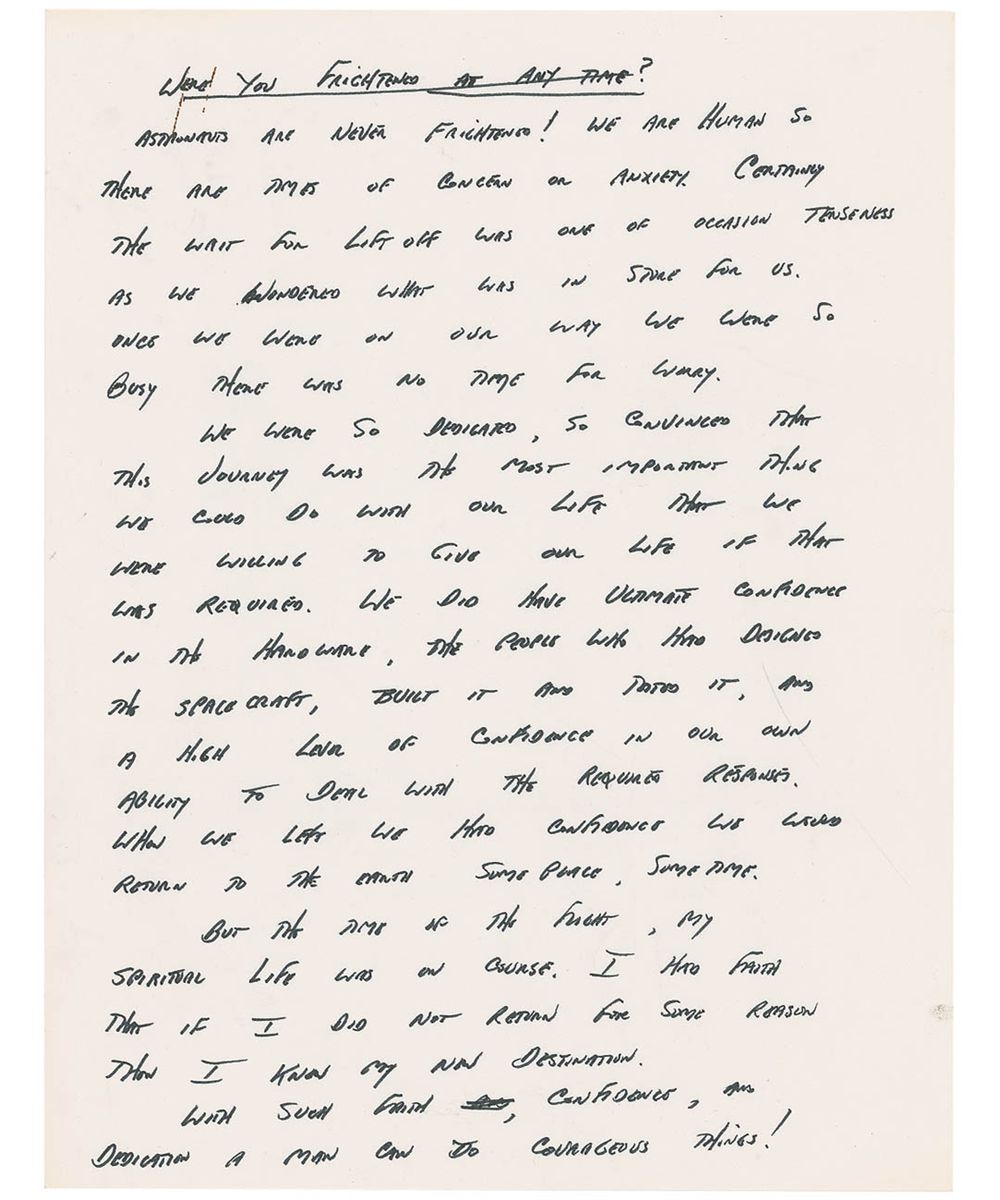 WERE YOU FRIGHTENED AT ANY TIME?
ASTRONAUTS ARE NEVER FRIGHTENED! WE ARE HUMAN SO
THERE ARE TIMES OF CONCERN OR ANXIETY. CERTAINLY
THE WAIT FOR LIFT OFF WAS ONE OF OCCASION TENSENESS
AS WE WONDERED WHAT WAS IN STORE FOR US.
ONCE WE WERE ON OUR WAY WE WERE SO
BUSY THERE WAS NO TIME FOR WORRY.
WE WERE SO DEDICATED, SO CONVINCED THAT
THIS JOURNEY WAS THE MOST IMPORTANT THING
WE COULD DO WITH OUR LIFE THAT WE
WERE WILLING TO GIVE OUR LIFE IF THAT
WAS REQUIRED. WE DID HAVE ULTIMATE CONFIDENCE
IN THE HARDWARE, THE PEOPLE WHO HAD DESIGNED
THE SPACECRAFT, BUILT IT AND TESTED IT, AND
A HIGH LEVEL OF CONFIDENCE IN OUR OWN
ABILITY TO DEAL WITH THE REQUIRED RESPONSES.
WHEN WE LEFT WE HAD CONFIDENCE WE WOULD
RETURN TO THE EARTH SOME PLACE, SOME TIME.
BUT THE TIME OF THE FLIGHT, MY
SPIRITUAL LIFE WAS ON COURSE. I HAD FAITH
THAT IF I DID NOT RETURN FOR SOME REASON
THEN I KNEW MY NEW DESTINATION.
WITH SUCH FAITH, CONFIDENCE, AND
DEDICATION A MAN CAN DO COURAGEOUS THINGS!